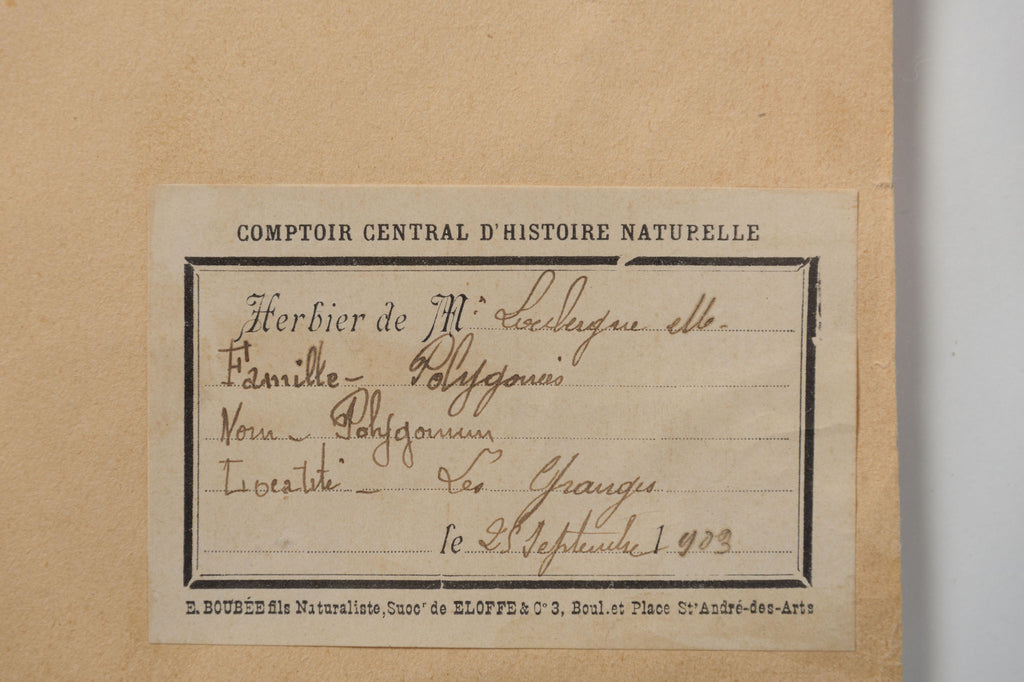 COMPTOIR CENTRAL D'HISTOIRE NATURELLE
Herbier de Mr Loubergne M.
Famille - Polygonées
Nom - Polygonum
Localité - Les Granges
le 25 Septembre 1903
E. BOUBÉE fils Naturaliste, Succr de ELOFFE & Co 3, Boul. et Place St André-des-Arts